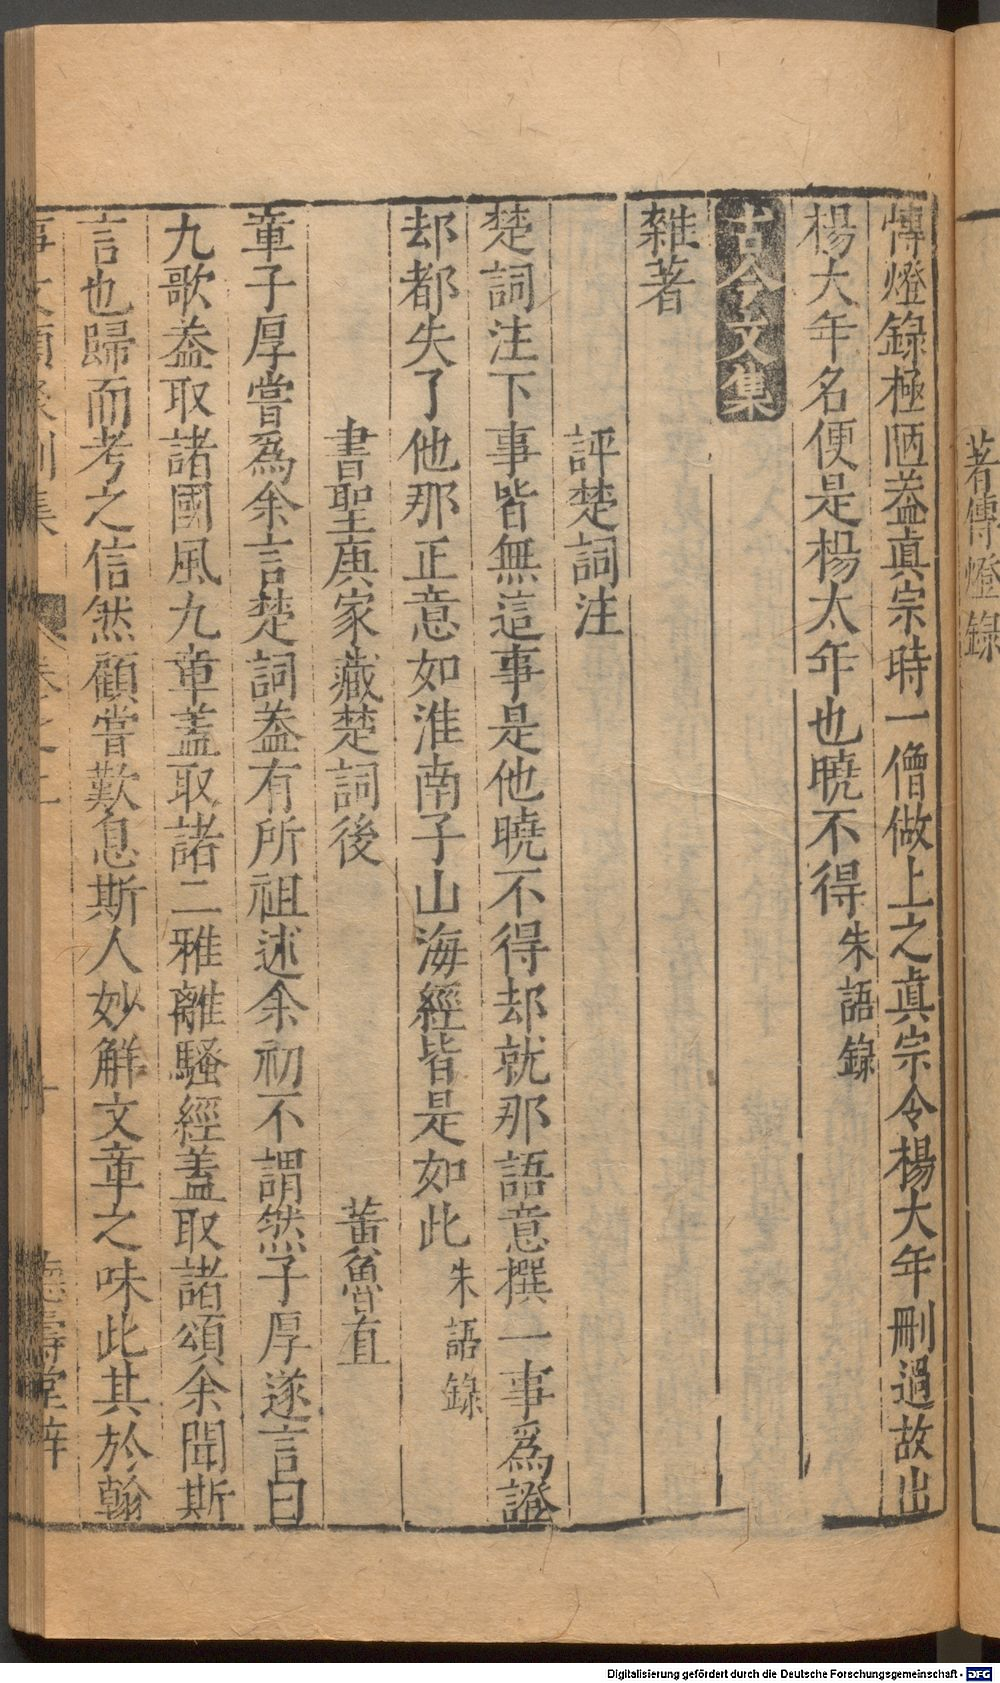 著傳燈錄
傳燈錄極陋葢眞宗時一僧做上之眞宗令楊大年刪過故出
楊大年名便是楊太年也曉不得朱語錄
古今文集
雜著
評楚詞注
楚詞注下事皆無這事是他曉不得却就那語意撰一事爲證
却都失了他那正意如淮南子山海經皆是如此朱語錄
書聖庚家藏楚詞後 黃魯直
章子厚嘗爲余言楚詞葢有所祖述余初不謂然子厚遂言曰
九歌葢取諸國風九章蓋取諸二雅離騷經蓋取諸頌余聞斯
言也歸而考之信然顧嘗歎息斯人妙解文章之味此其於翰
事文類聚別集 卷之二 十 德壽堂梓
Digitalisierung gefördert durch die Deutsche Forschungsgemeinschaft - DFG